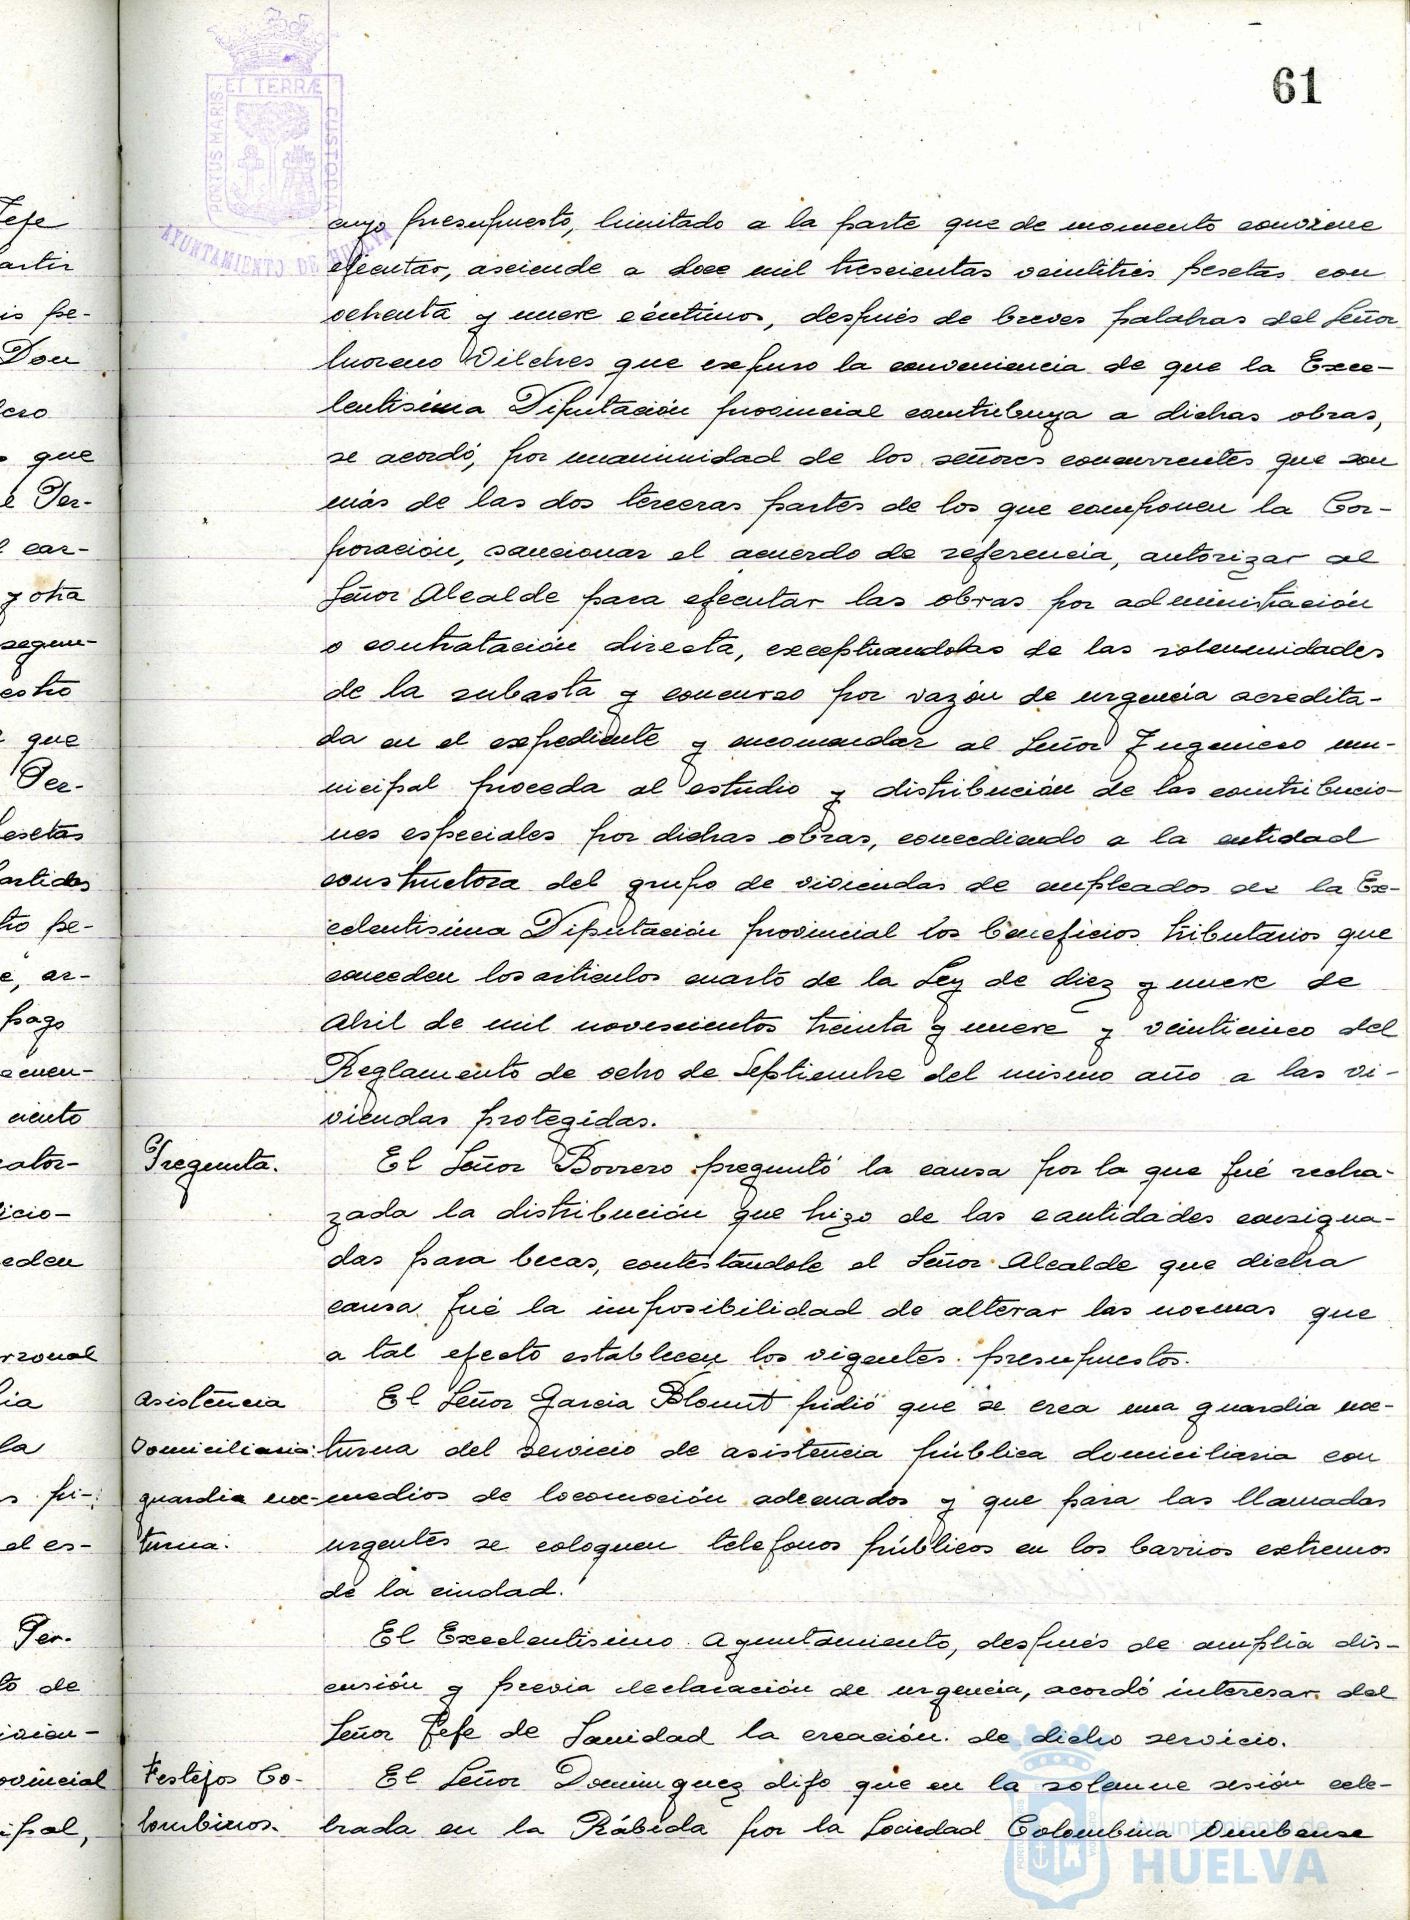 61
PORTUS MARIS ET TERRÆ CUSTODIA
AYUNTAMIENTO DE HUELVA
cuyo presupuesto, limitado a la parte que de momento conviene
ejecutar, asciende a doce mil trescientas veintitrés pesetas con
ochenta y nueve céntimos, después de breves palabras del Señor
Moreno Vilches que expuso la conveniencia de que la Exce-
lentísima Diputación provincial contribuya a dichas obras,
se acordó, por unanimidad de los señores concurrentes que son
más de las dos terceras partes de los que componen la Cor-
poración, sancionar el acuerdo de referencia, autorizar al
Señor Alcalde para ejecutar las obras por administración
o contratación directa, exceptuandolas de las solemnidades
de la subasta y concurso por razón de urgencia acredita-
da en el expediente y encomendar al Señor Ingeniero mu-
nicipal proceda al estudio y distribución de las contribucio-
nes especiales por dichas obras, concediendo a la entidad
constructora del grupo de viviendas de empleados de la Ex-
celentísima Diputación provincial los beneficios tributarios que
conceden los artículos cuarto de la Ley de diez y nueve de
Abril de mil novescientos treinta y nueve y veinticinco del
Reglamento de ocho de Septiembre del mismo año a las vi-
viendas protegidas.
Pregunta. El Señor Borrero preguntó la causa por la que fué recha-
zada la distribución que hizo de las cantidades consigna-
das para becas, contestándole el Señor Alcalde que dicha
causa fué la imposibilidad de alterar las normas que
a tal efecto establecen los vigentes presupuestos.
Asistencia El Señor Garcia Blount pidió que se crea una guardia noc-
Domiciliaria: turna del servicio de asistencia pública domiciliaria con
guardia noc- medios de locomoción adecuados y que para las llamadas
turna. urgentes se coloquen telefonos públicos en los barrios extremos
de la ciudad.
El Excelentísimo Ayuntamiento, después de amplia dis-
cusión y previa declaración de urgencia, acordó interesar del
Señor Jefe de Sanidad la creación de dicho servicio.
Festejos Co- El Señor Dominguez dijo que en la solemne sesión cele-
lombinos. brada en la Rábida por la Sociedad Colombina Onubense
Ayuntamiento de
HUELVA
Jefe
artir
is pe-
Don
que
Per-
l car-
y otra
segun-
estro
que
Per-
esetas
artidas
to pe-
e, ar-
pago
ecuen-
ciento
ator-
icio-
eden
rsonal
ia
la
s pri-
el es-
Per-
to de
ivien-
ovincial
ipal,